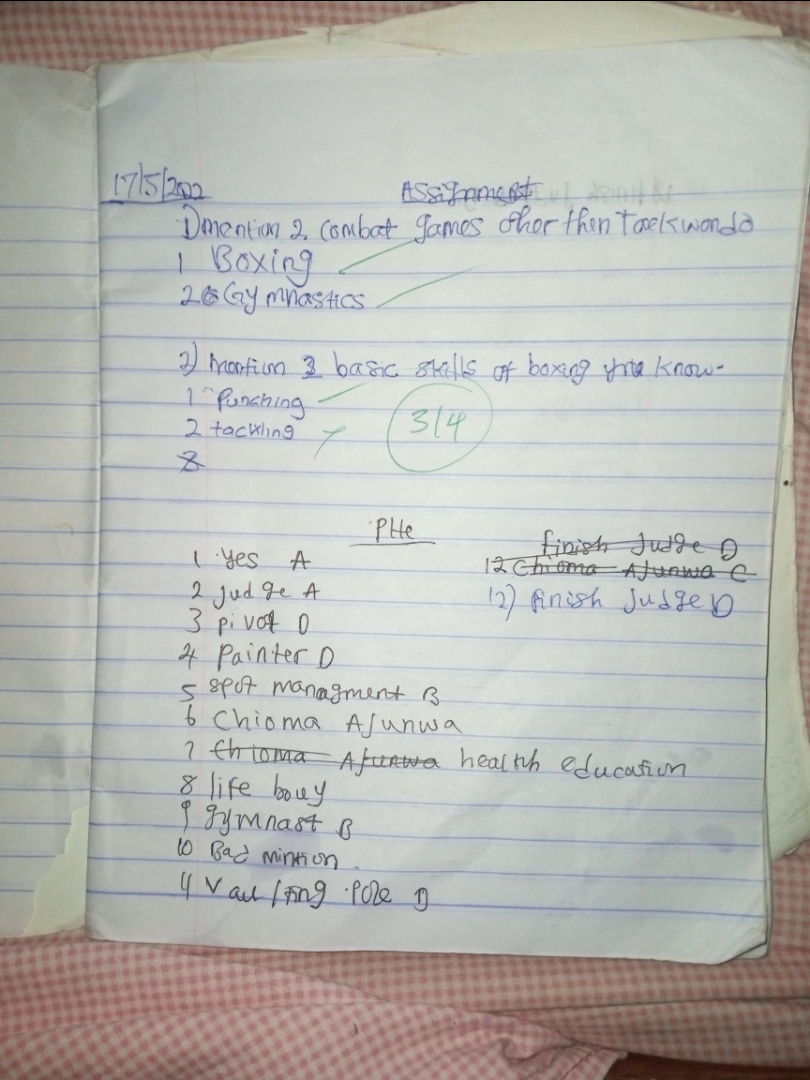 17/5/2022
Assignment
1) mention 2 combat games other then Taekwondo
1 Boxing
2 Gymnastics
2) mention 3 basic skills of boxing you know-
1 Punching
2 tackling
3/4
PHe
1 Yes A
2 judge A
3 pivot D
4 Painter D
5 spot managment B
6 Chioma AJunwa
7 Chioma AJunwa health education
8 life bouy
9 gymnast B
10 Bad mintion
11 Vaulting pole D
finish Judge D
12 Chioma AJunwa C
12) finish Judge D